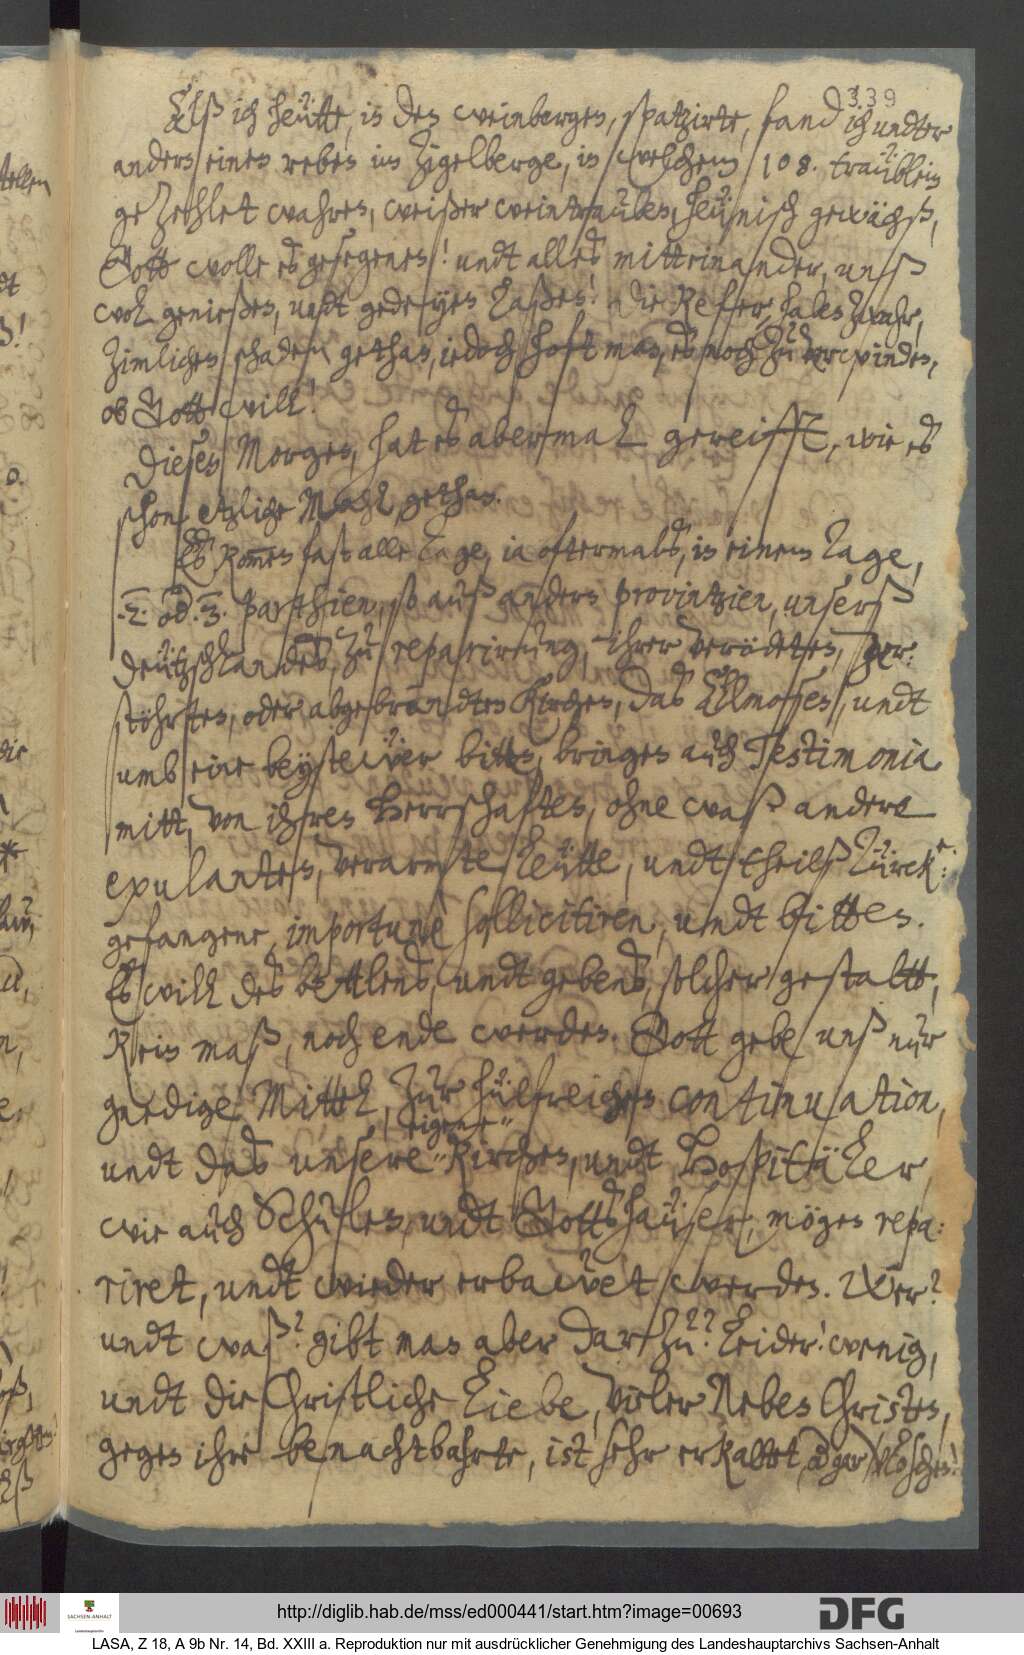 339
Alß ich heütte, in den weinbergen, spatzirte, fand ich undter
andern einen reben im Zigelberge, in welchem 108. traüblein
gezehlet wahren, weißer weintrauben, heünisch gewächß,
Gott wolle es gesegenen! undt alles mitteinander, unß
wol genießen, undt gedeyen laßen! Die Reher, haben zwahr,
zimlichen schaden gethan, iedoch hoft man, es noch zu verwinden,
ob Gott will!
Diesen Morgen, hat es abermal gereifft, wie es
schon etzliche Mahl, gethan.
Es kommen fast alle Tage, ia oftermals, in einem Tage,
2. od. 3. parthien, so auß andern provintzien, unserß
deützschlandes, zu reparirung, ihrer verödeten, zer:
stöhrten, oder abgebrandten Kirchen, das Allmosen, undt
umb eine beysteüer bitten, bringen auch Testimonia
mitt, von ihren Herrschaften, ohne waß andere
exulanten, verarmte leütte, undt theilß Türck:
gefangene, importune sollicitiren, undt bitten.
Es will des bettlens, undt gebens, solcher gestaltt,
kein maß, noch ende werden. Gott gebe unß nur
gnedige Mittel, zur hülfreichen continuation,
eigene"
undt das unsere" Kirchen, undt Hospitäler,
wie auch Schulen, undt Gottshaüser, mögen repa:
riret, undt wieder erbawet werden. Wer?
undt waß? gibt man aber darzu?? Leider! wenig,
undt die Christliche Liebe, vieler Neben Christen,
gegen ihre benachtbahrte, ist sehr erkaltet, od gar erloschen!
http://diglib.hab.de/mss/ed000441/start.htm?image=00693
DFG
SACHSEN-ANHALT
LASA, Z 18, A 9b Nr. 14, Bd. XXIII a. Reproduktion nur mit ausdrücklicher Genehmigung des Landeshauptarchivs Sachsen-Anhalt